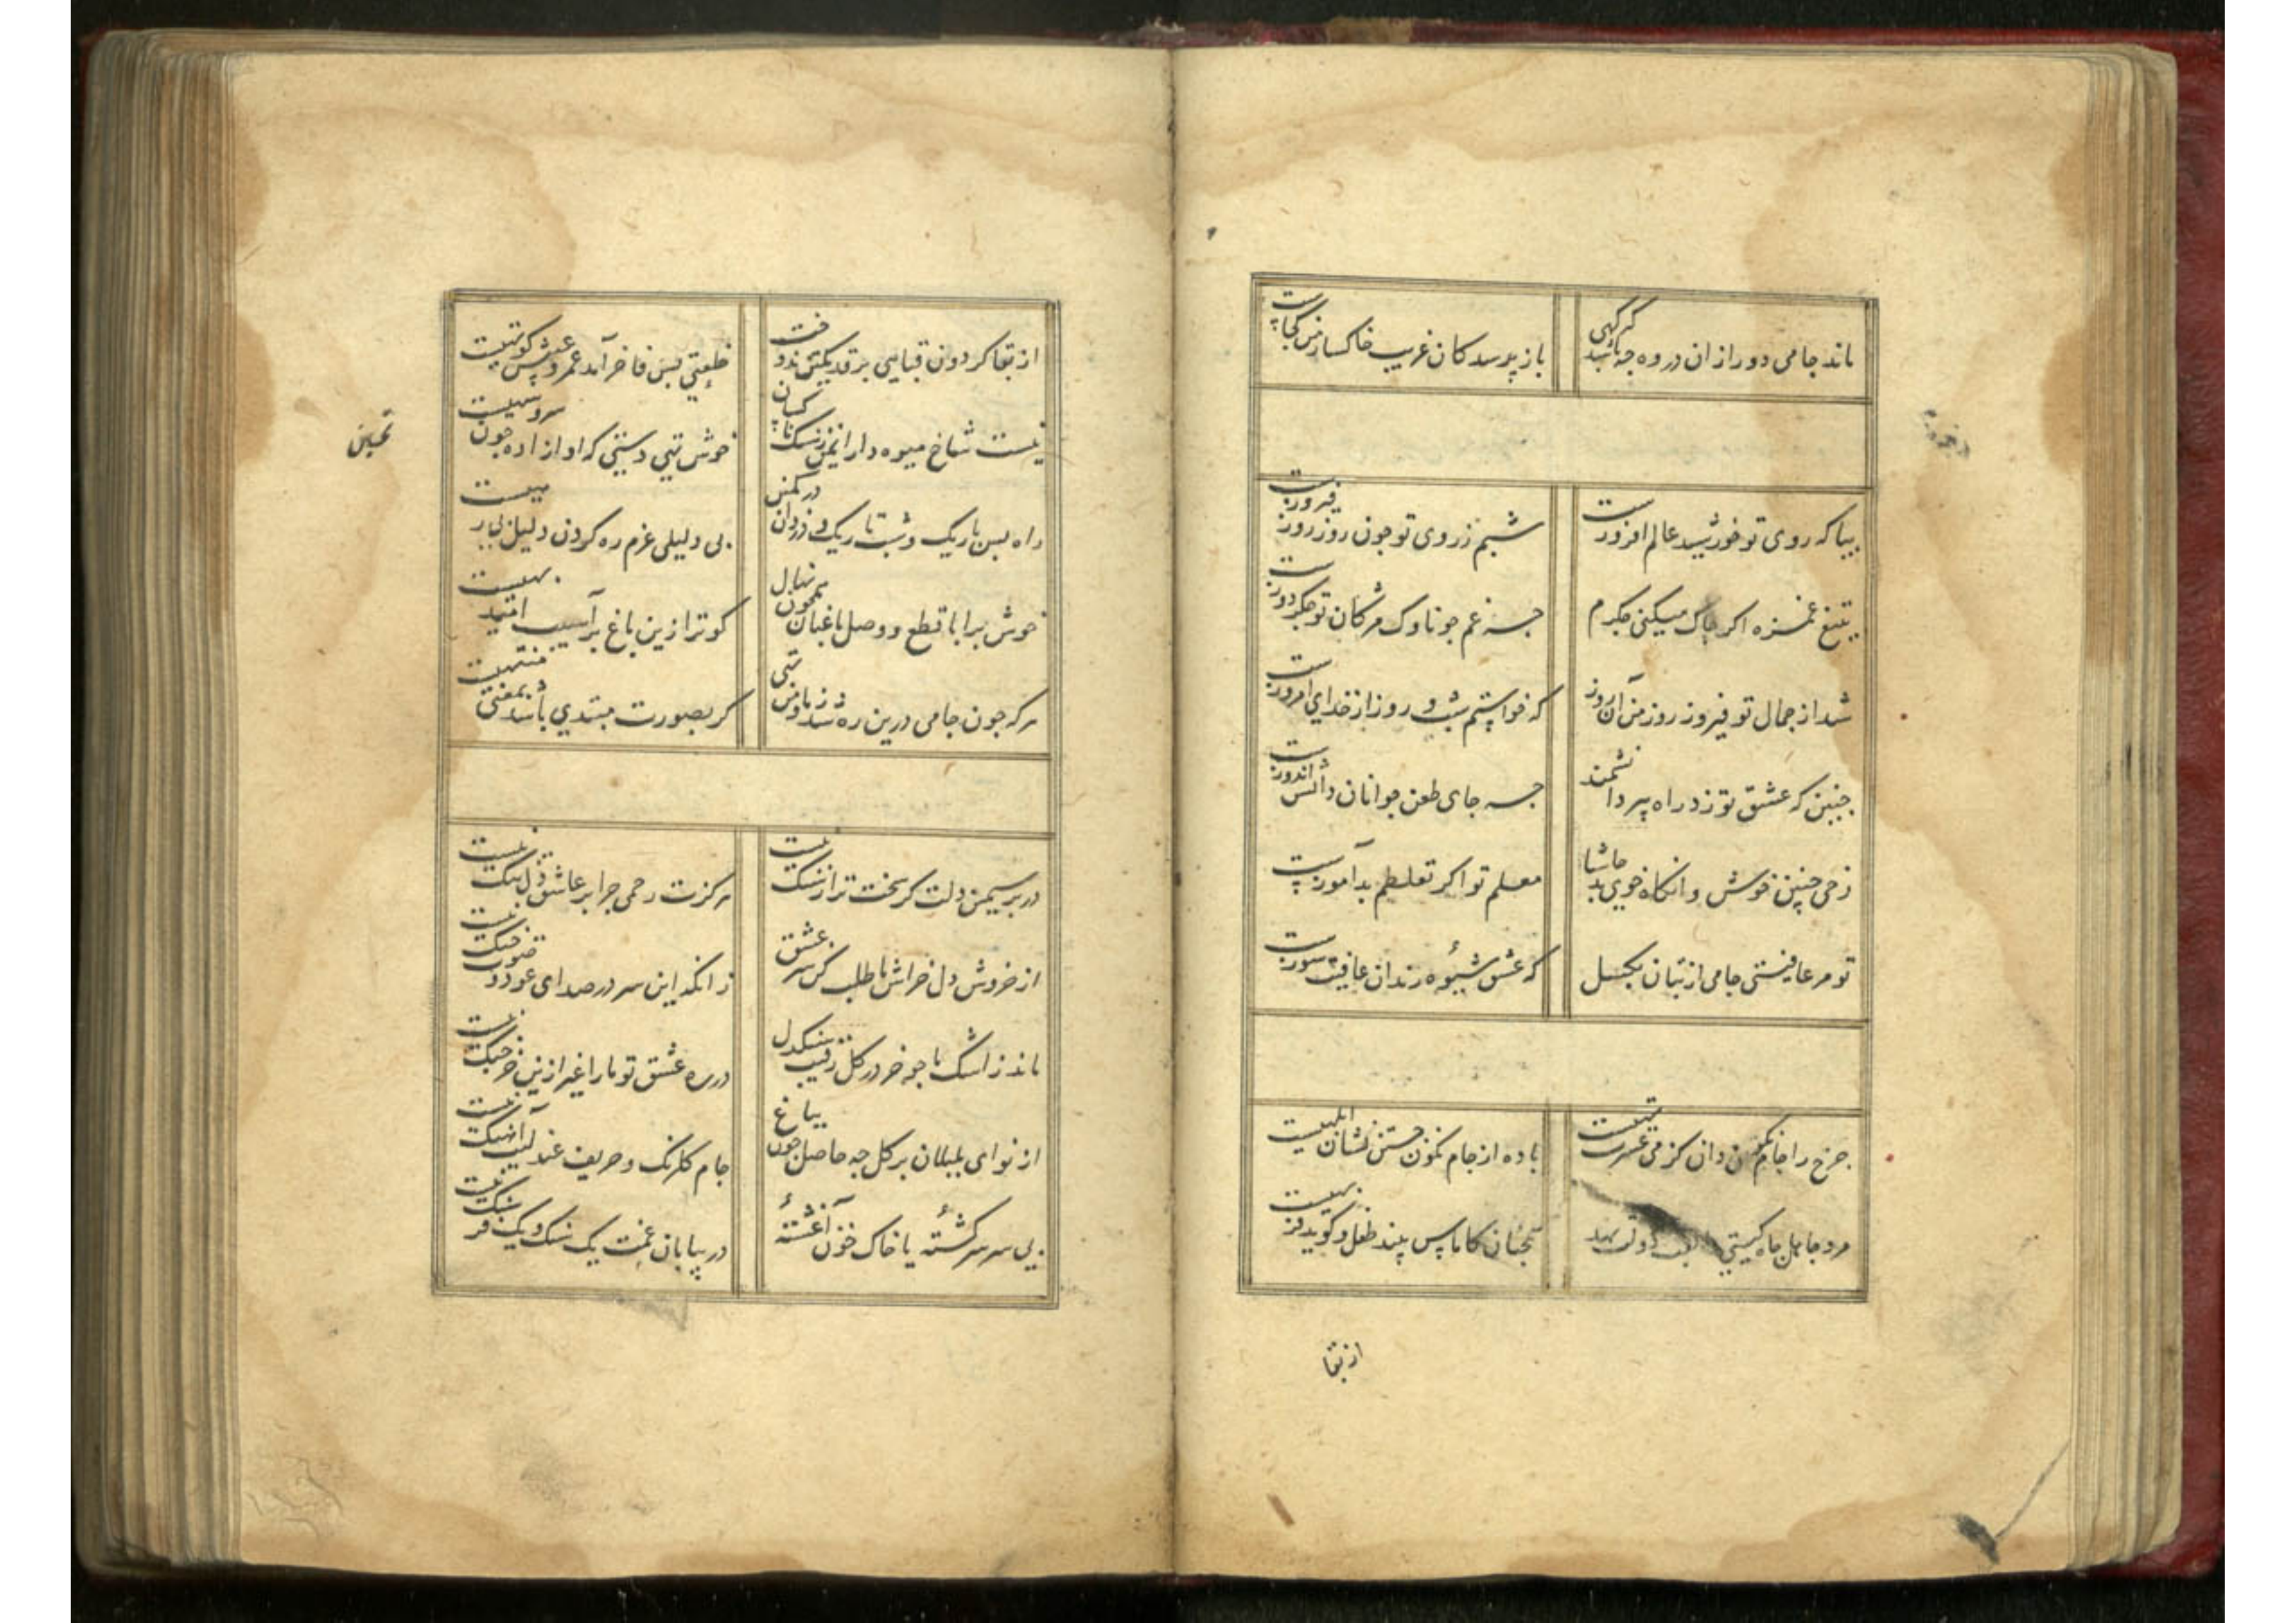 ماند جامی دور ازان در وه چه باشد گر گهی
باز پرسد کان غریب خاکسار من کجاست
بیا که روی تو خورشید عالم افروزست
شبم ز روی تو چون روز روز فیروزست
بتیغ غمزه اگر چاک میکنی جگرم
چه غم چو ناوک مژگان تو جگردوزست
شد از جمال تو فیروز روز من آن روز
که خواستم شب و روز از خدای امروزست
چنین که عشق تو زد راه پیر دانشمند
چه جای طعن جوانان دانش اندوزست
زهی چنین خوش وانگاه خوی بد حاشا
معلم تو اگر تغلطم بدآموزست
تو مرد عافیتی جامی از بتان بگسل
که عشق شیوه رندان عافیت سوزست
چرخ را جام نگون دان کز می عشرت تهیست
باده از جام نگون جستن نشان ابلهیست
مرد جاهل جاه گیتی را لقب دولت نهد
همچنان کاماس بیند طفل و گوید فربهیست
از بقا
از بقا گردون قبایی بر قد یکتن ندوخت
خلعتی بس فاخر آمد عمر و عیبش کوتهیست
نیست شاخ میوه دار ایمن ز سنگ ناکسان
خوش تهی دستی که او آزاده چون سرو سهیست
راه بس باریک و شب تاریک و دزدان در کمین
بی دلیلی عزم ره کردن دلیل بی رهیست
خوش برآ با قطع و وصل باغبان همچون نهال
کو ترا زین باغ بر آسیب امید بهیست
هر که چون جامی درین ره شد ز ما و من تهی
گر بصورت مبتدی باشد بمعنی منتهیست
در بر سیمین دلت گر سخت تر از سنگ نیست
هرگزت رحمی چرا بر عاشق دل تنگ نیست
از خروش دل خراش ما طلب کن سر عشق
زانکه این سر در صدای عود و صوت چنگ نیست
ماند ز اشک ما چو خر در گل رقیب سنگدل
در ره عشق تو ما را غیر ازین خرچنگ نیست
از نوای بلبلان بر گل چه حاصل چون بباغ
جام گلرنگ و حریف عندلیب آهنگ نیست
بی سر سرگشته یا خاک خون آغشته
در بیابان غمت یک سنگ و یک فرسنگ نیست